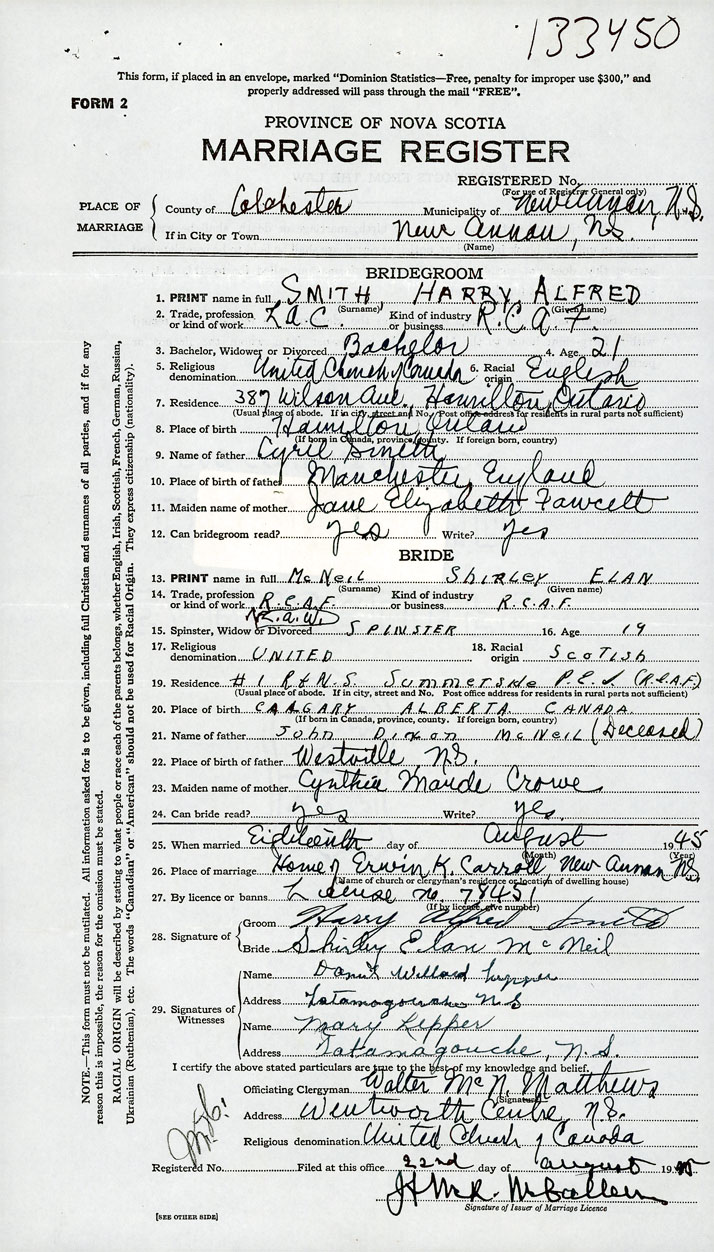 133450
This form, if placed in an envelope, marked "Dominion Statistics—Free, penalty for improper use $300," and
properly addressed will pass through the mail "FREE".
FORM 2
PROVINCE OF NOVA SCOTIA
MARRIAGE REGISTER
REGISTERED No.
(For use of Registrar General only)
PLACE OF MARRIAGE
County of Colchester Municipality of New Annan, N.S.
If in City or Town New Annan, N.S.
(Name)
BRIDEGROOM
1. PRINT name in full SMITH, HARRY ALFRED
(Surname) (Given name)
2. Trade, profession or kind of work L.A.C. Kind of industry or business R.C.A.F.
3. Bachelor, Widower or Divorced Bachelor 4. Age 21
5. Religious denomination United Church of Canada 6. Racial origin English
7. Residence 387 Wilson Ave, Hamilton, Ontario
(Usual place of abode. If in city, street and No. Post office address for residents in rural parts not sufficient)
8. Place of birth Hamilton Ontario
(If born in Canada, province, county. If foreign born, country)
9. Name of father Cyril Smith
10. Place of birth of father Manchester, England
11. Maiden name of mother Jane Elizabeth Fawcett
12. Can bridegroom read? yes Write? yes
BRIDE
13. PRINT name in full McNEIL SHIRLEY ELAN
(Surname) (Given name)
14. Trade, profession or kind of work R.C.A.F. Kind of industry or business R.C.A.F.
15. Spinster, Widow or Divorced SPINSTER 16. Age 19
17. Religious denomination UNITED 18. Racial origin SCOTISH
19. Residence # 1 R & N.S. Summerside P.E.I (R.C.A.F.)
(Usual place of abode. If in city, street and No. Post office address for residents in rural parts not sufficient)
20. Place of birth CAALGARY ALBERTA CANADA
(If born in Canada, province, county. If foreign born, country)
21. Name of father John Dixon McNEIL (Deceased)
22. Place of birth of father Westville, N.S.
23. Maiden name of mother Cynthia Maude Crowe
24. Can bride read? yes Write? yes.
25. When married Eighteenth day of August 1945
(Month) (Year)
26. Place of marriage Home of Erwin K. Carroll, New Annan N.S.
(Name of church or clergyman's residence or location of dwelling house)
27. By licence or banns License no. 78451
(If by licence, give number)
28. Signature of
Groom Harry Alfred Smith
Bride Shirley Elan McNeil
29. Signatures of Witnesses
Name Willard
Address Tatamagouche N.S
Name Mary
Address Tatamagouche, N.S.
I certify the above stated particulars are true to the best of my knowledge and belief.
Officiating Clergyman Walter McN. Matthews
(Signature)
Address Wentworth Centre, N.S.
Religious denomination United Church of Canada
Registered No. Filed at this office 22nd day of August 1945
Signature of Issuer of Marriage Licence
[SEE OTHER SIDE]
NOTE.—This form must not be mutilated. All information asked for is to be given, including full Christian and surnames of all parties, and if for any
reason this is impossible, the reason for the omission must be stated.
RACIAL ORIGIN will be described by stating to what people or race each of the parents belongs, whether English, Irish, Scottish, French, German, Russian,
Ukrainian (Ruthenian), etc. The words "Canadian" or "American" should not be used for Racial Origin. They express citizenship (nationality).